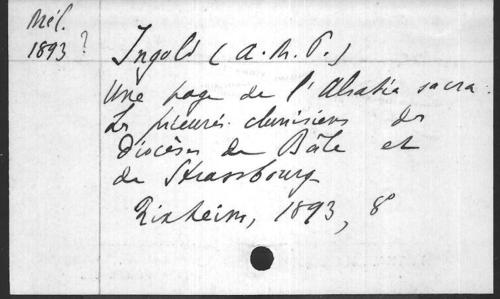 Mél.
1893 ?
Ingold (A. M. P.)
Une page de l'Alsatia sacra.
Les prieurés clunisiens des
diocèses de Bâle et
de Strasbourg
Rixheim, 1893, 8°